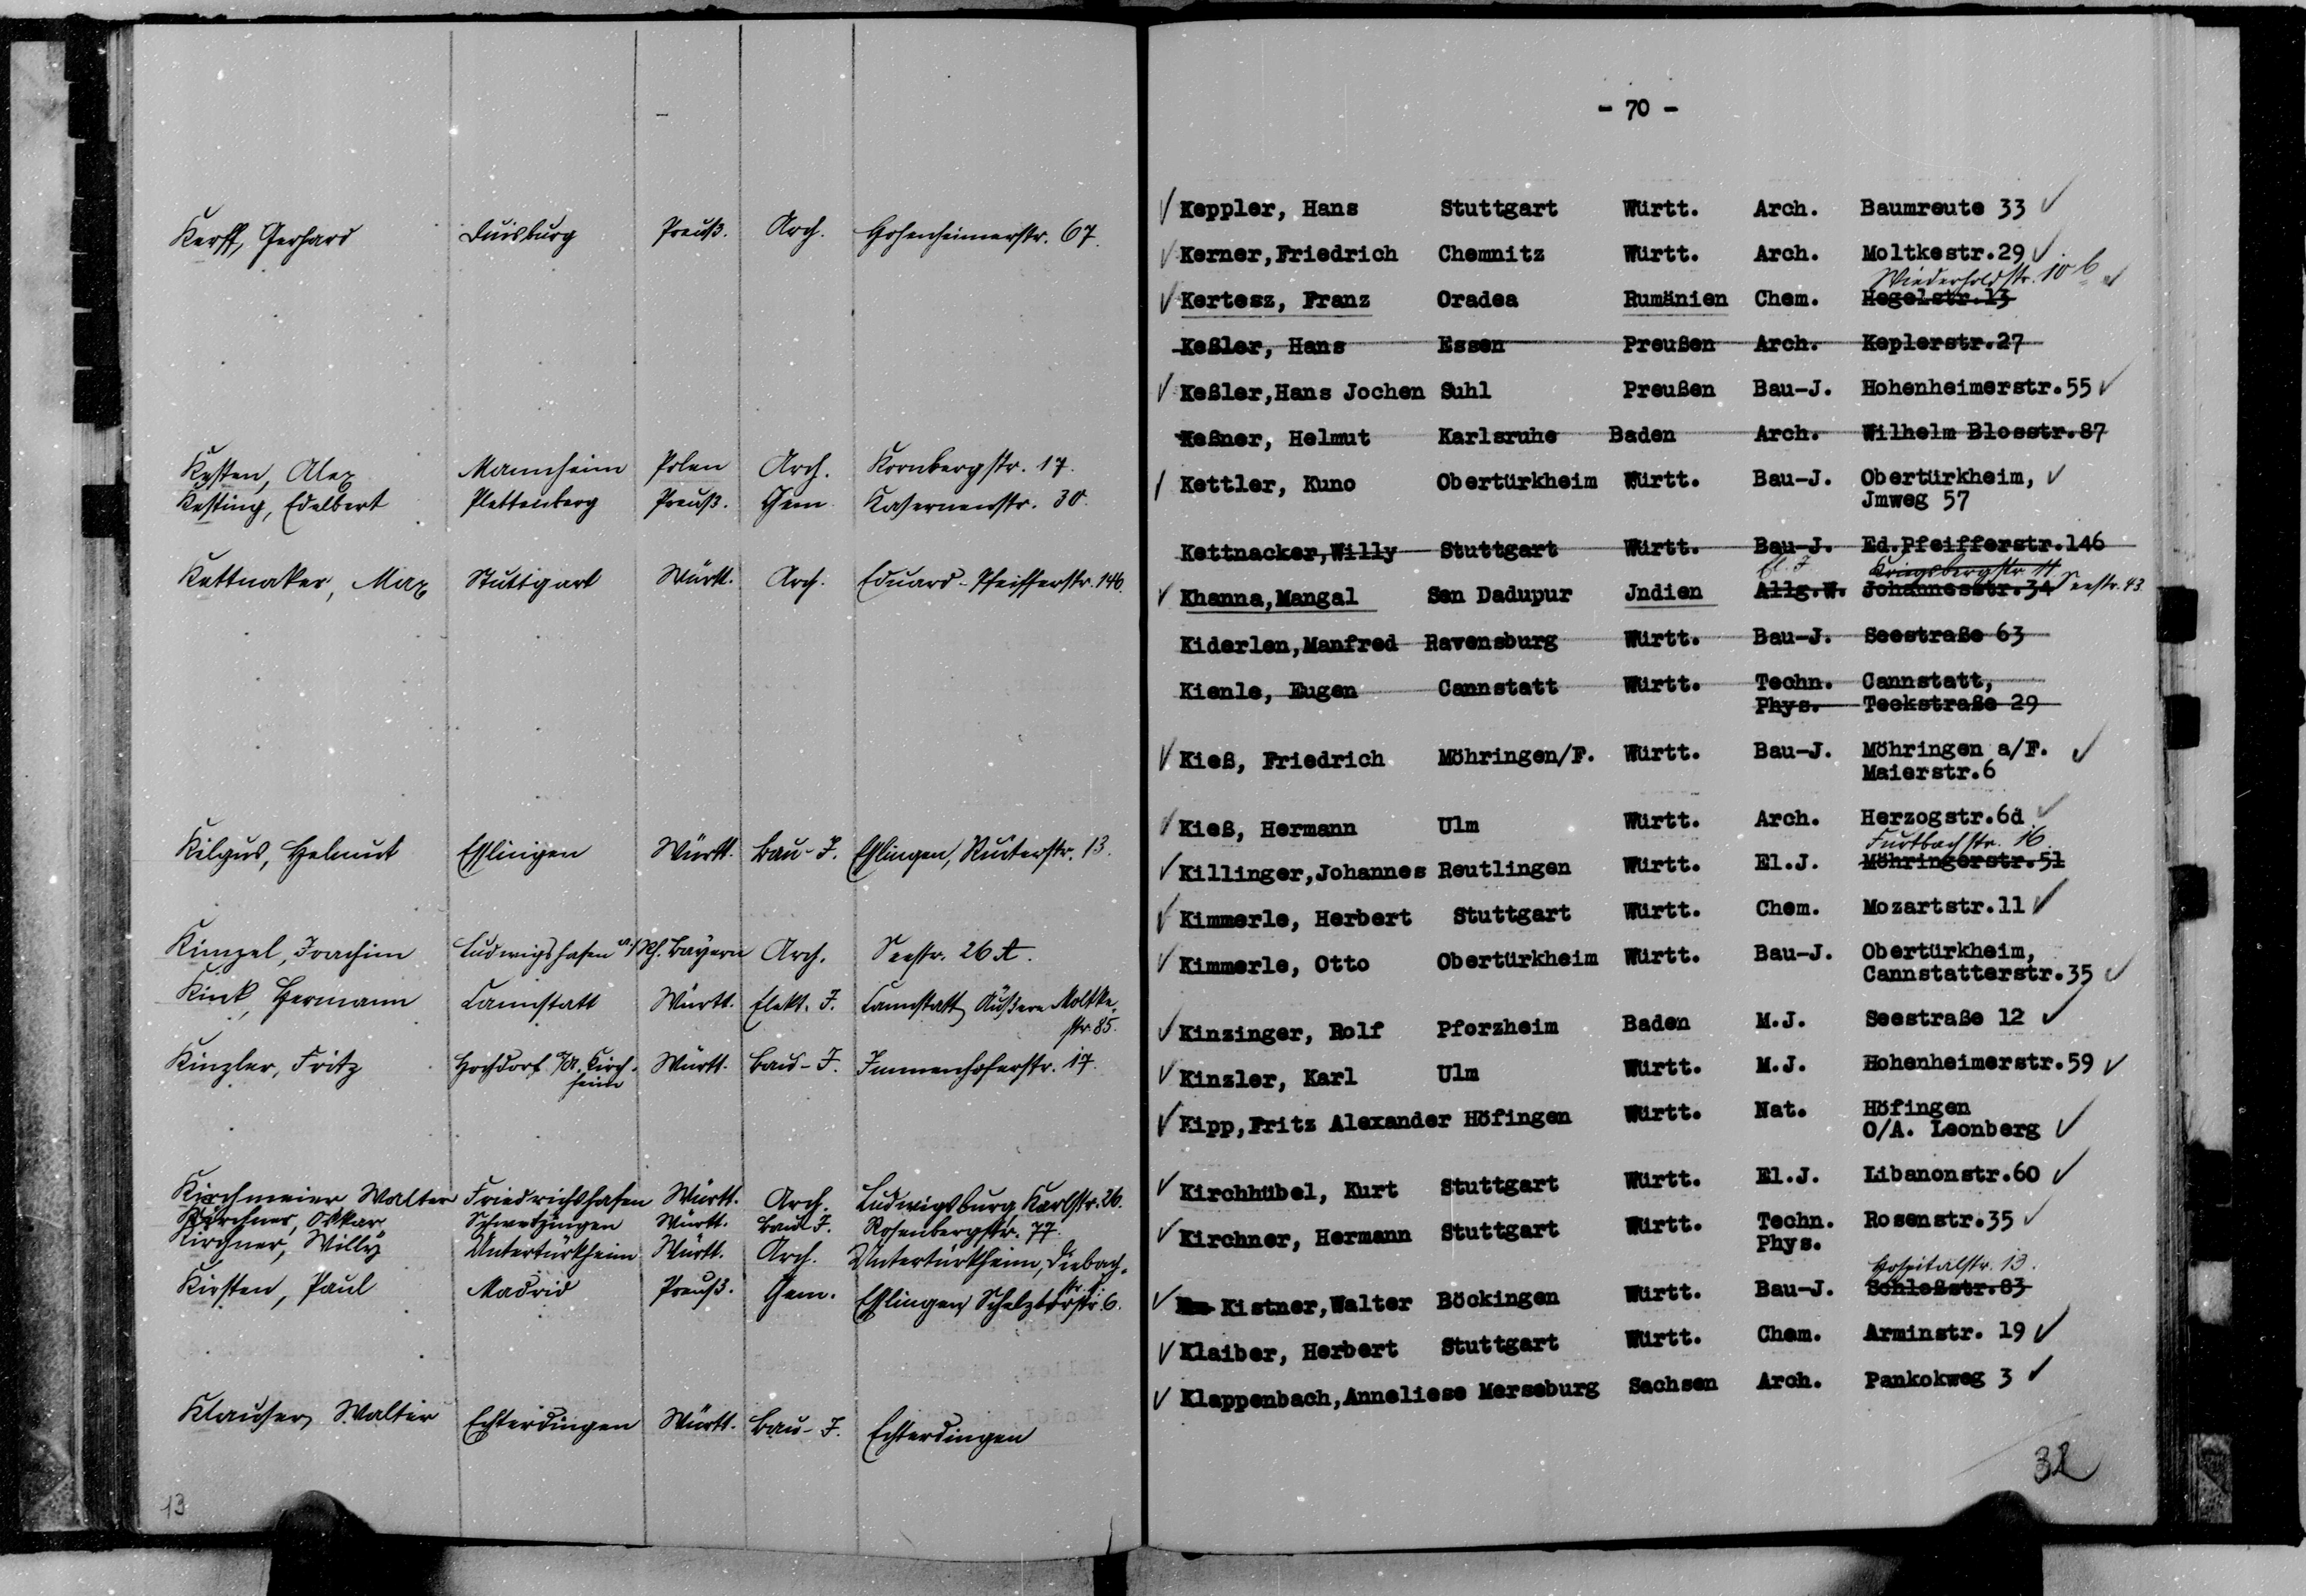 Kerff, Gerhard Duisburg Preuß. Arch. Hohenheimerstr. 67.
Kesten, Alex Mannheim Polen Arch. Kornbergstr. 17.
Kesting, Edelbert Plettenberg Preuß. Chem. Kasernenstr. 30.
Kettnaker, Max Stuttgart Württ. Arch. Eduard-Pfeifferstr. 146.
Kilgus, Helmut Eßlingen Württ. Bau-J. Eßlingen, 13.
Kimzel, Joachim Ludwigshafen a/Rh. Bayern Arch. Seestr. 26 A.
Kink, Hermann Cannstatt Württ. Elekt. J. Cannstatt, Äußere Moltke-
str. 85.
Kinzler, Fritz Hochdorf O/A. Kirch- Württ. Bau-J. Immenhoferstr. 17.
heim
Kirchmeier Walter Friedrichshafen Württ. Arch. Ludwigsburg Karlstr. 26.
Kirchner, Oskar Schwetzingen Württ. Bau J. Rosenbergstr. 77.
Kirchner, Willy Untertürkheim Württ. Arch. Untertürkheim, Diebach-
str.
Kirsten, Paul Madrid Preuß. Chem. Eßlingen, Schelztorstr. 6.
Klauser, Walter Echterdingen Württ. Bau-J. Echterdingen
13
- 70 -
Keppler, Hans Stuttgart Württ. Arch. Baumreute 33
Kerner,Friedrich Chemnitz Württ. Arch. Moltkestr.29
Wiederholdstr. 10 b
Kertesz, Franz Oradea Rumänien Chem. Hegelstr.13
Keßler, Hans Essen Preußen Arch. Keplerstr.27
Keßler,Hans Jochen Suhl Preußen Bau-J. Hohenheimerstr.55
Keßner, Helmut Karlsruhe Baden Arch. Wilhelm Blosstr.87
Kettler, Kuno Obertürkheim Württ. Bau-J. Obertürkheim,
Jmweg 57
Kettnacker,Willy Stuttgart Württ. Bau-J. Ed.Pfeifferstr.146
El. J Kriegsbergstr. 11
Khanna,Mangal Sen Dadupur Jndien Allg.W. Johannesstr.34 Seestr. 43
Kiderlen,Manfred Ravensburg Württ. Bau-J. Seestraße 63
Kienle, Eugen Cannstatt Württ. Techn. Cannstatt,
Phys. Teckstraße 29
Kieß, Friedrich Möhringen/F. Württ. Bau-J. Möhringen a/F.
Maierstr.6
Kieß, Hermann Ulm Württ. Arch. Herzogstr.6d
Furtbachstr. 16.
Killinger,Johannes Reutlingen Württ. El.J. Möhringerstr.51
Kimmerle, Herbert Stuttgart Württ. Chem. Mozartstr.11
Kimmerle, Otto Obertürkheim Württ. Bau-J. Obertürkheim,
Cannstatterstr.35
Kinzinger, Rolf Pforzheim Baden M.J. Seestraße 12
Kinzler, Karl Ulm Württ. M.J. Hohenheimerstr.59
Kipp,Fritz Alexander Höfingen Württ. Nat. Höfingen
O/A. Leonberg
Kirchhübel, Kurt Stuttgart Württ. El.J. Libanonstr.60
Kirchner, Hermann Stuttgart Württ. Techn. Rosenstr.35
Phys.
Hospitalstr. 13.
Kistner,Walter Böckingen Württ. Bau-J. Schloßstr.83
Klaiber, Herbert Stuttgart Württ. Chem. Arminstr. 19
Klappenbach,Anneliese Merseburg Sachsen Arch. Pankokweg 3
32